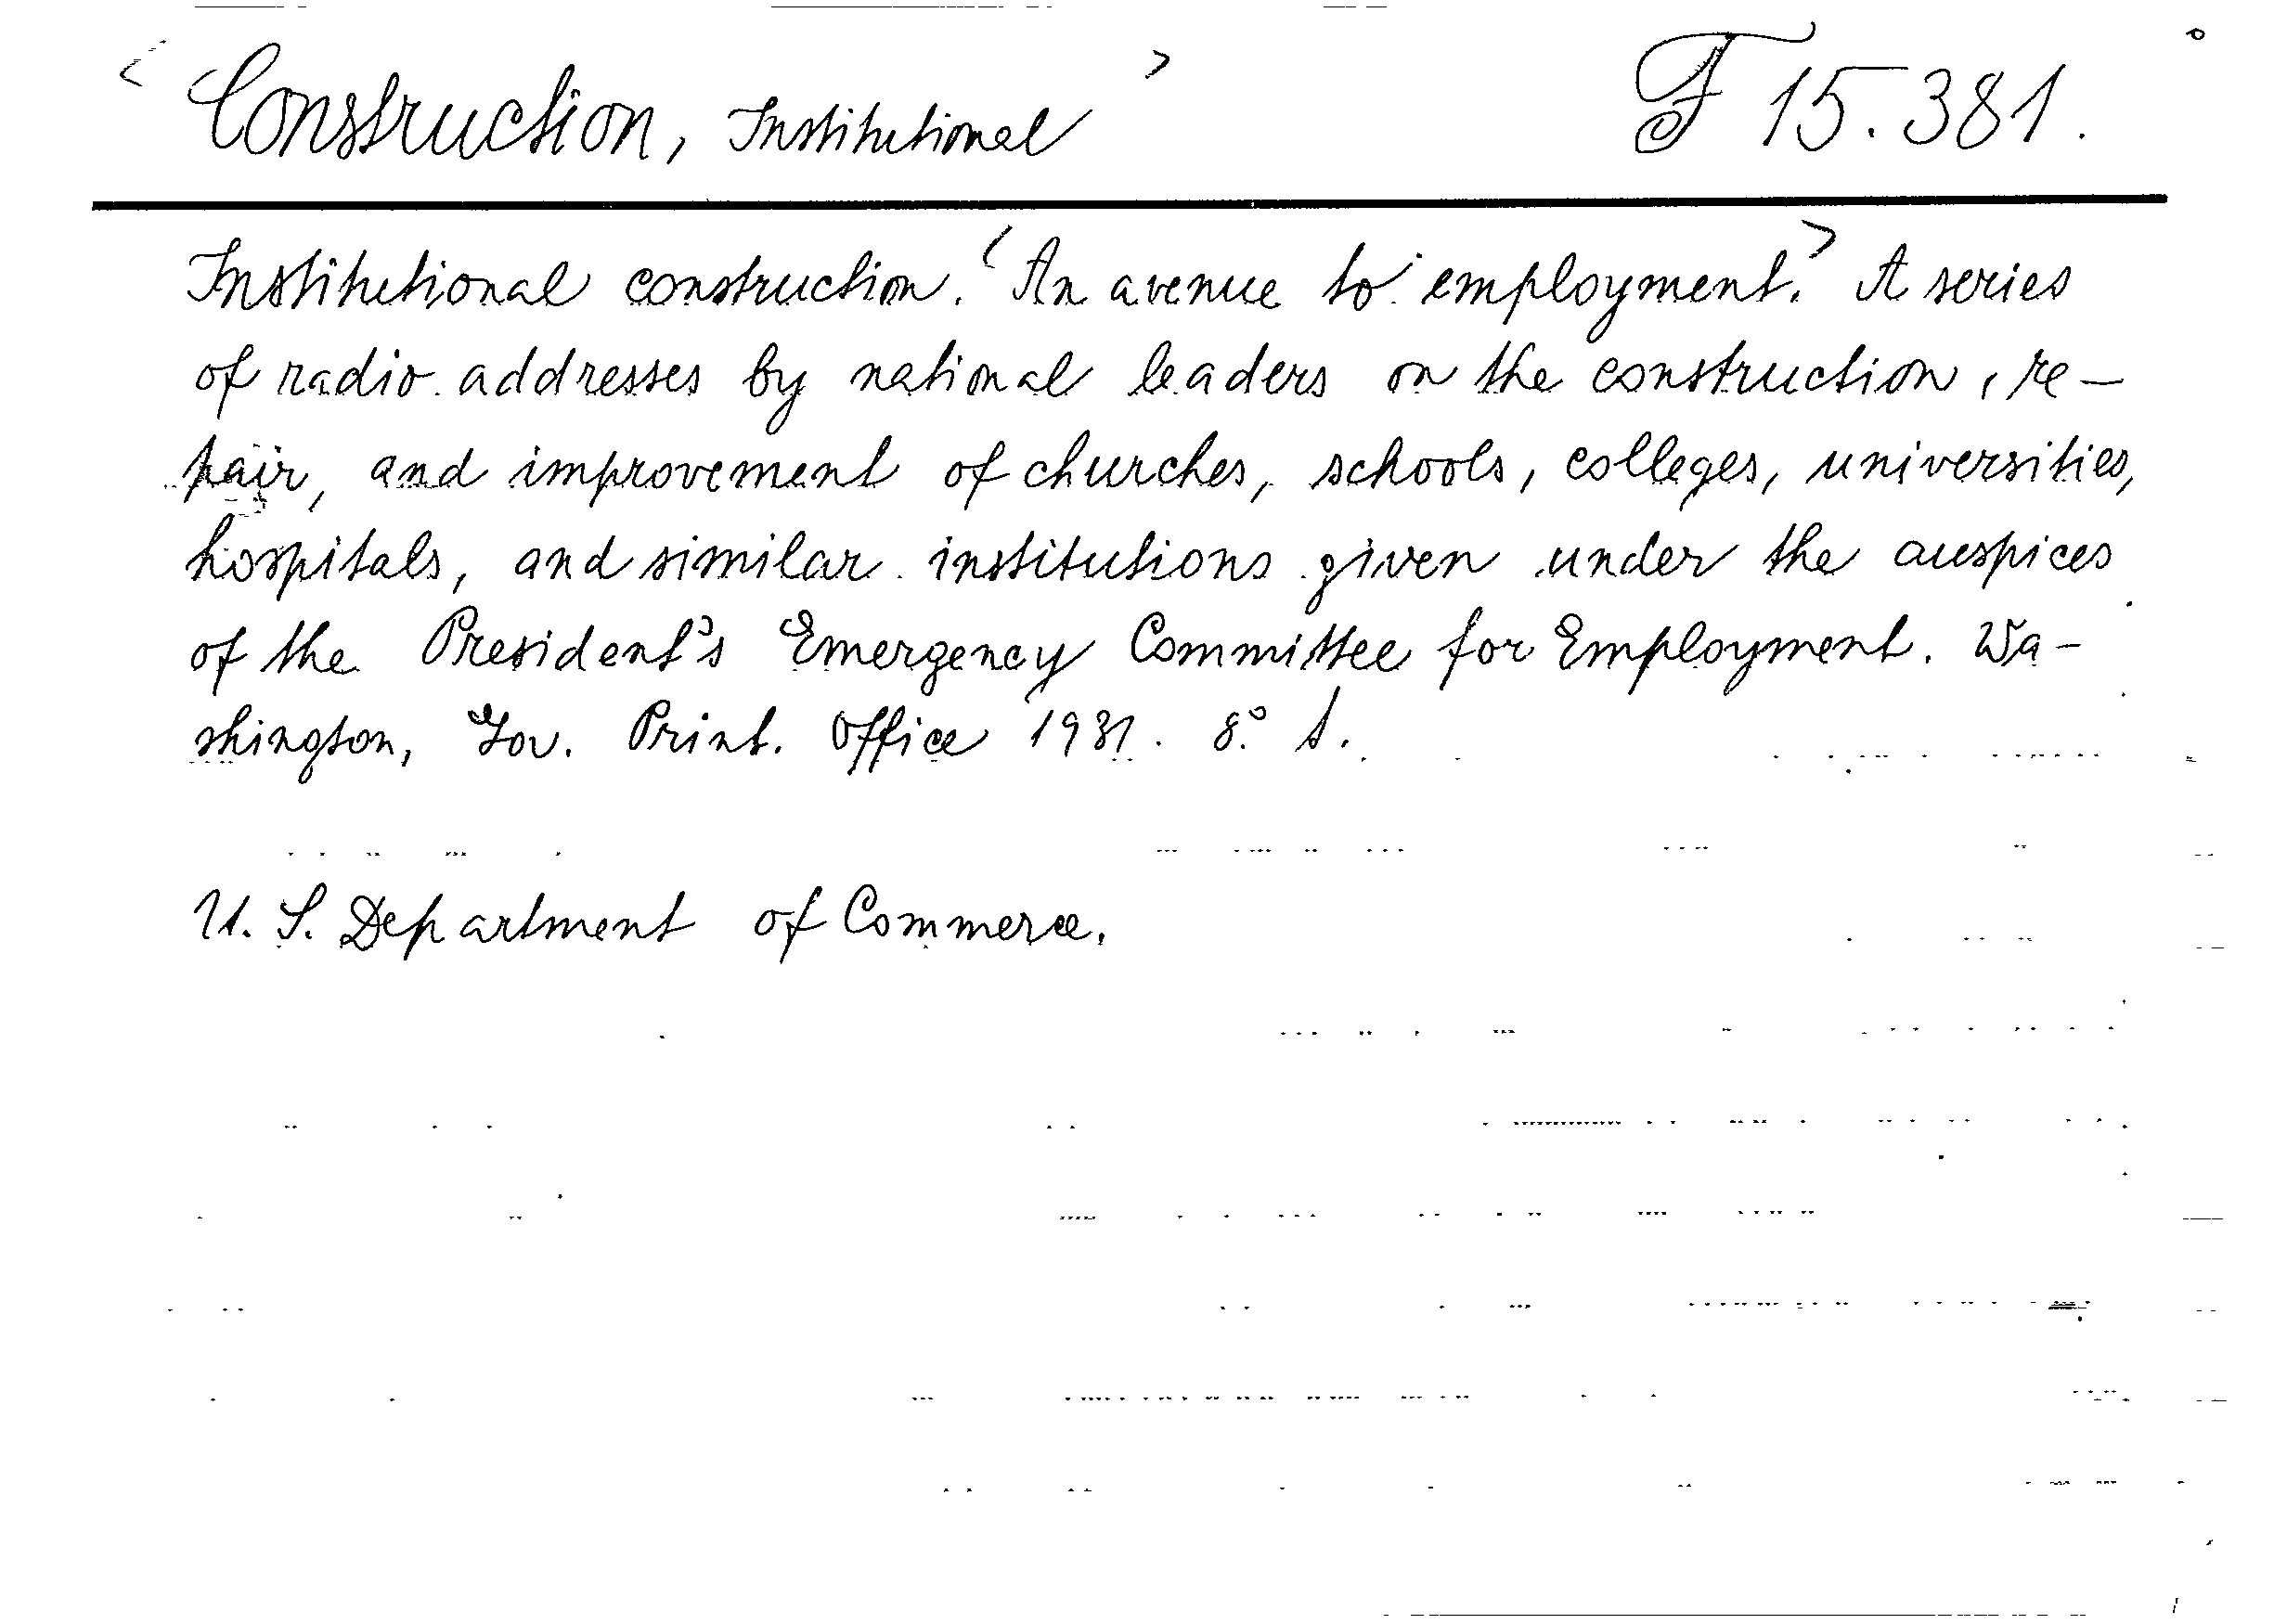 < Construction, Institutional > F 15.381.
Institutional construction. < An avenue to employment. > A series
of radio addresses by national leaders on the construction, re-
pair, and improvement of churches, schools, colleges, universities,
hospitals, and similar institutions given under the auspices
of the President's Emergency Committee for Employment. Wa-
shington, Gov. Print. Office 1931. 8.°
U. S. Department of Commerce.